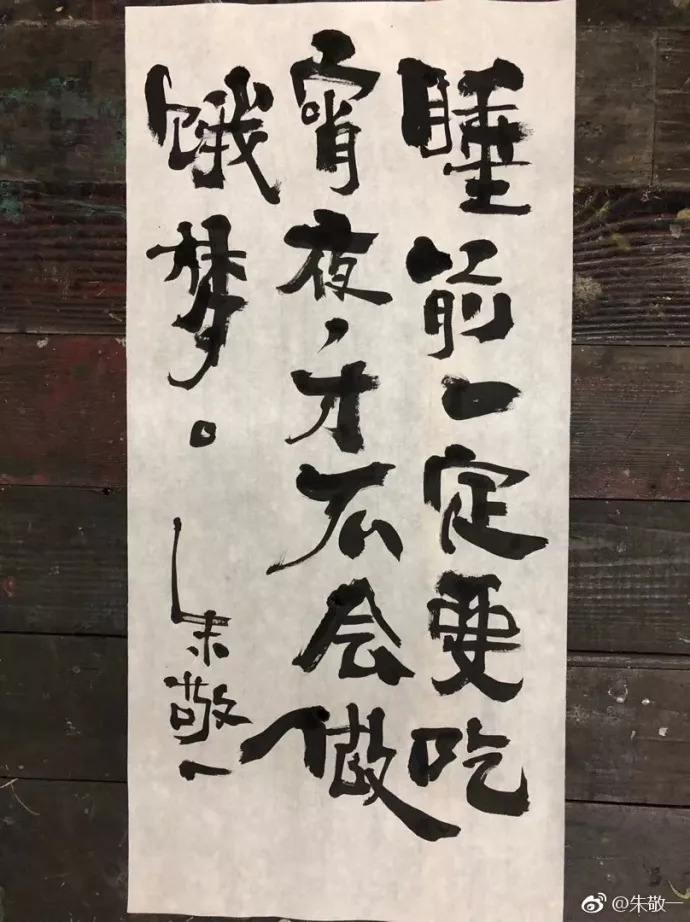 睡前一定要吃
宵夜，才不会做
饿梦。
朱敬一
@朱敬一